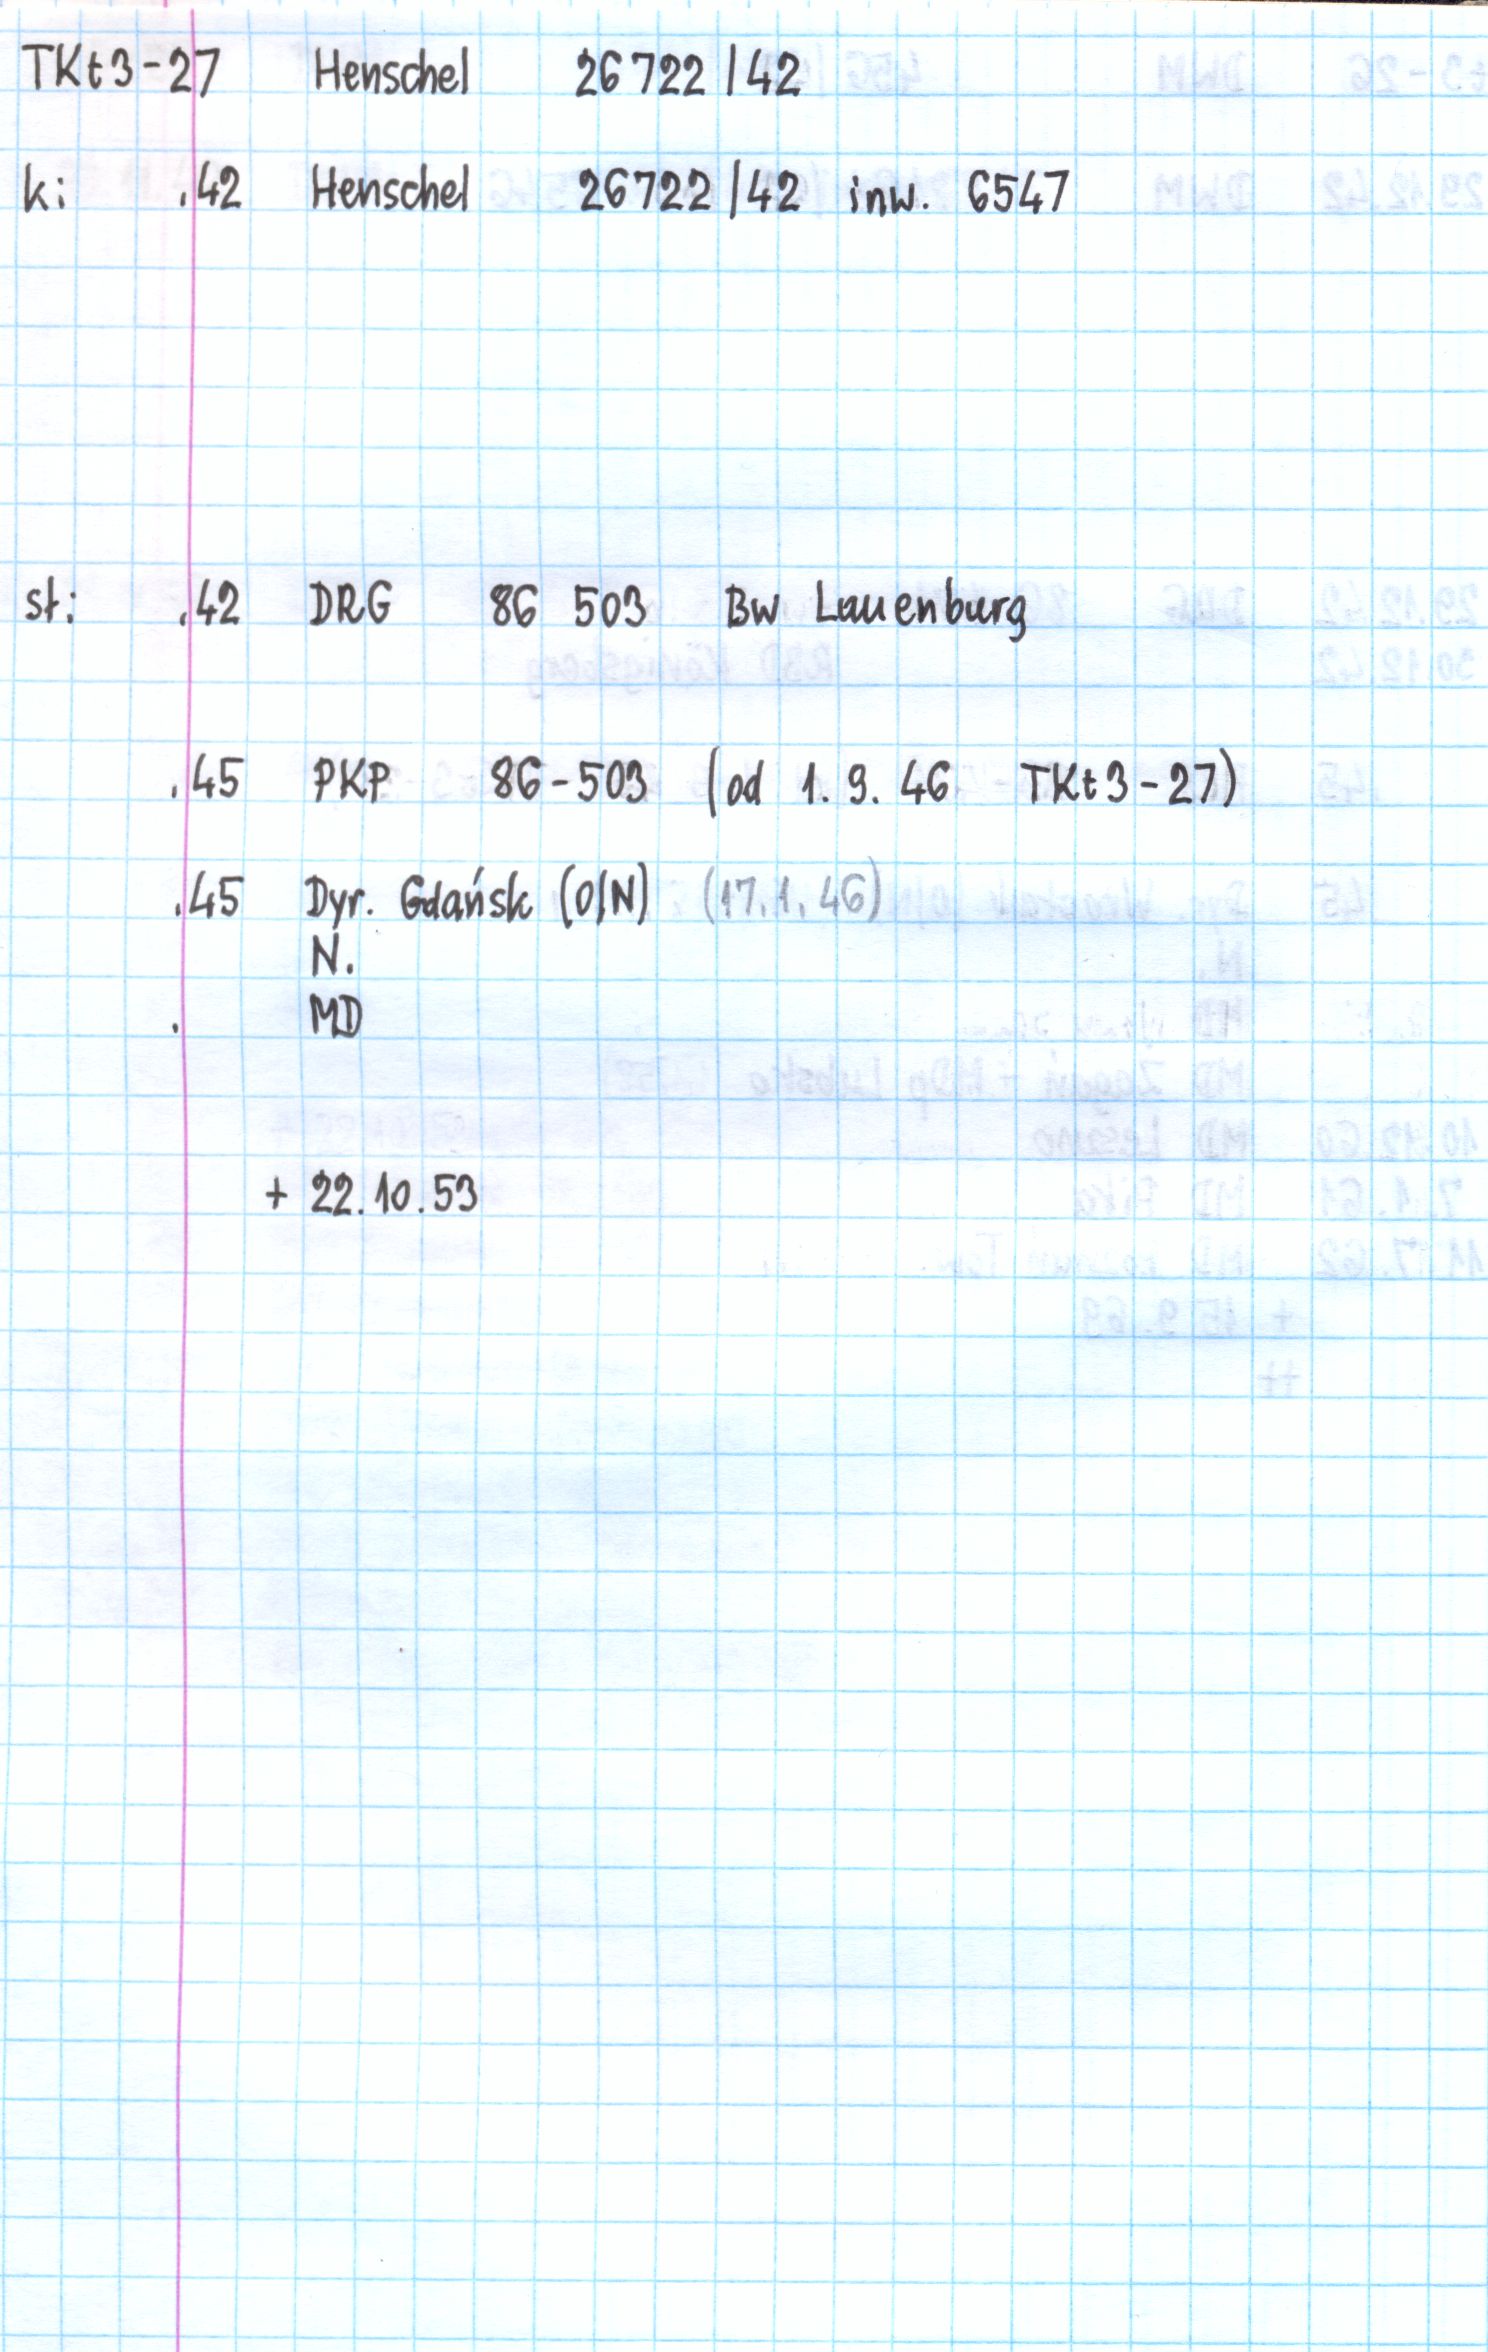 TKt3-27 Henschel 26722/42
k: .42 Henschel 26722/42 inw. 6547
st: .42 DRG 86 503 Bw Lauenburg
.45 PKP 86-503 (od 1.9.46 TKt3-27)
.45 Dyr. Gdańsk (O/N) (17.1.46)
N.
. MD
+ 22.10.53